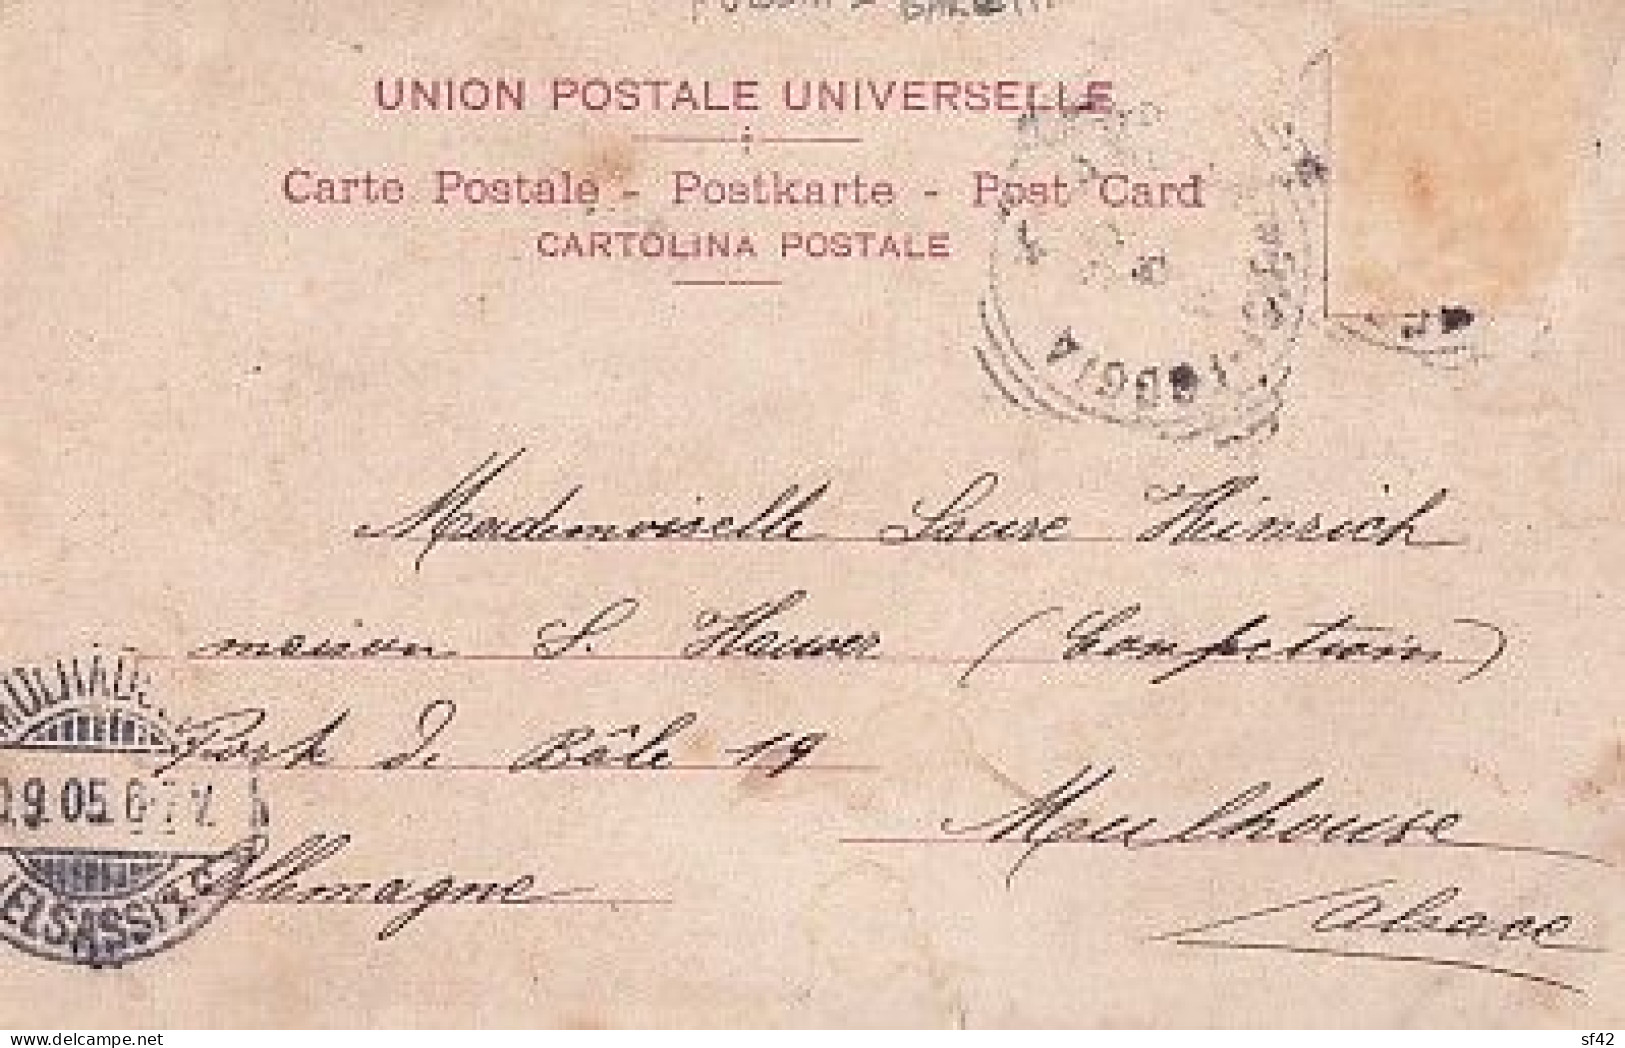 UNION POSTALE UNIVERSELLE
Carte Postale - Postkarte - Post Card
CARTOLINA POSTALE
OGGIA
Mademoiselle Laure Heinrich
maison S. Hauser (Confections)
Porte de Bâle 19
Mulhouse
Allemagne
Alsace
MÜLHAUS
9.05. 6-7 N
ELSASS
delcampe.net
sf42